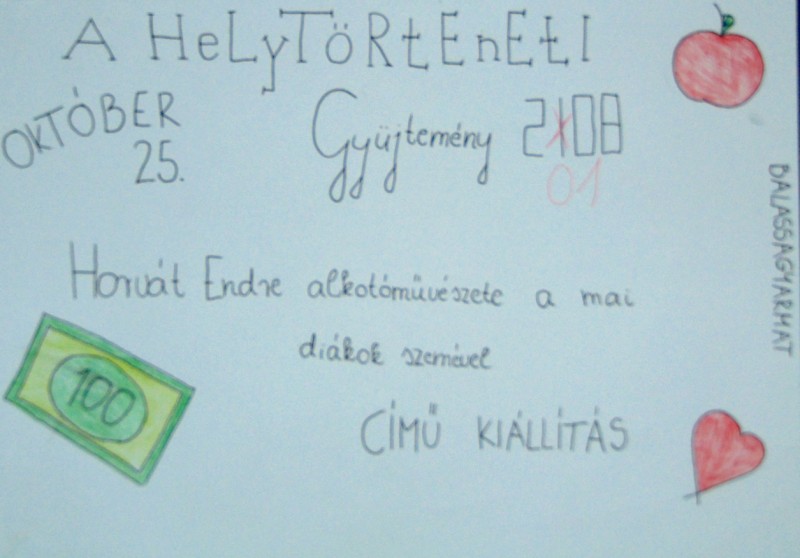 A HeLyTÖRtEnEtI
OKTÓBER
25.
Gyüjtemény 2108
01
BALASSAGYARMAT
Horvát Endre alkotóművészete a mai
diákok szemével
100
CÍMŰ KIÁLLÍTÁS